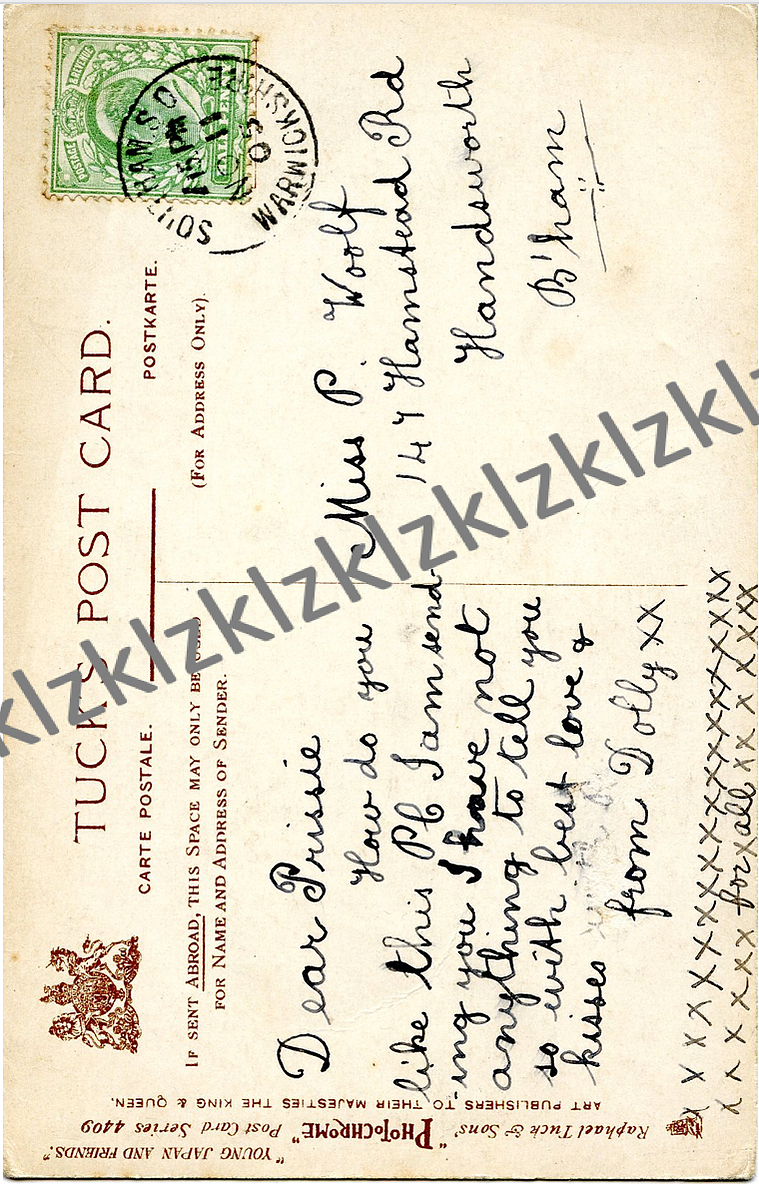 TUCK'S POST CARD.
CARTE POSTALE.
POSTKARTE.
IF SENT ABROAD, THIS SPACE MAY ONLY BE USED
FOR NAME AND ADDRESS OF SENDER.
(FOR ADDRESS ONLY).
POSTAGE
& REVENUE
SOUTHAM S.O
WARWICKSHIRE
Dear Prissie
How do you
like this PC I am send-
ing you I have not
anything to tell you
so with best love &
kisses
from Dolly xx
x x x x x x x x x x x x x x x x x x x x
x x x x x x for x all xx x x x x x
Miss P. Woolf
147 Hamstead Rd
Handsworth
B'ham
"YOUNG JAPAN AND FRIENDS."
Raphael Tuck & Sons' "PHOTOCHROME" Post Card Series 4409
ART PUBLISHERS TO THEIR MAJESTIES THE KING & QUEEN.
klzklzklzklzklzklzklzklzklzkl